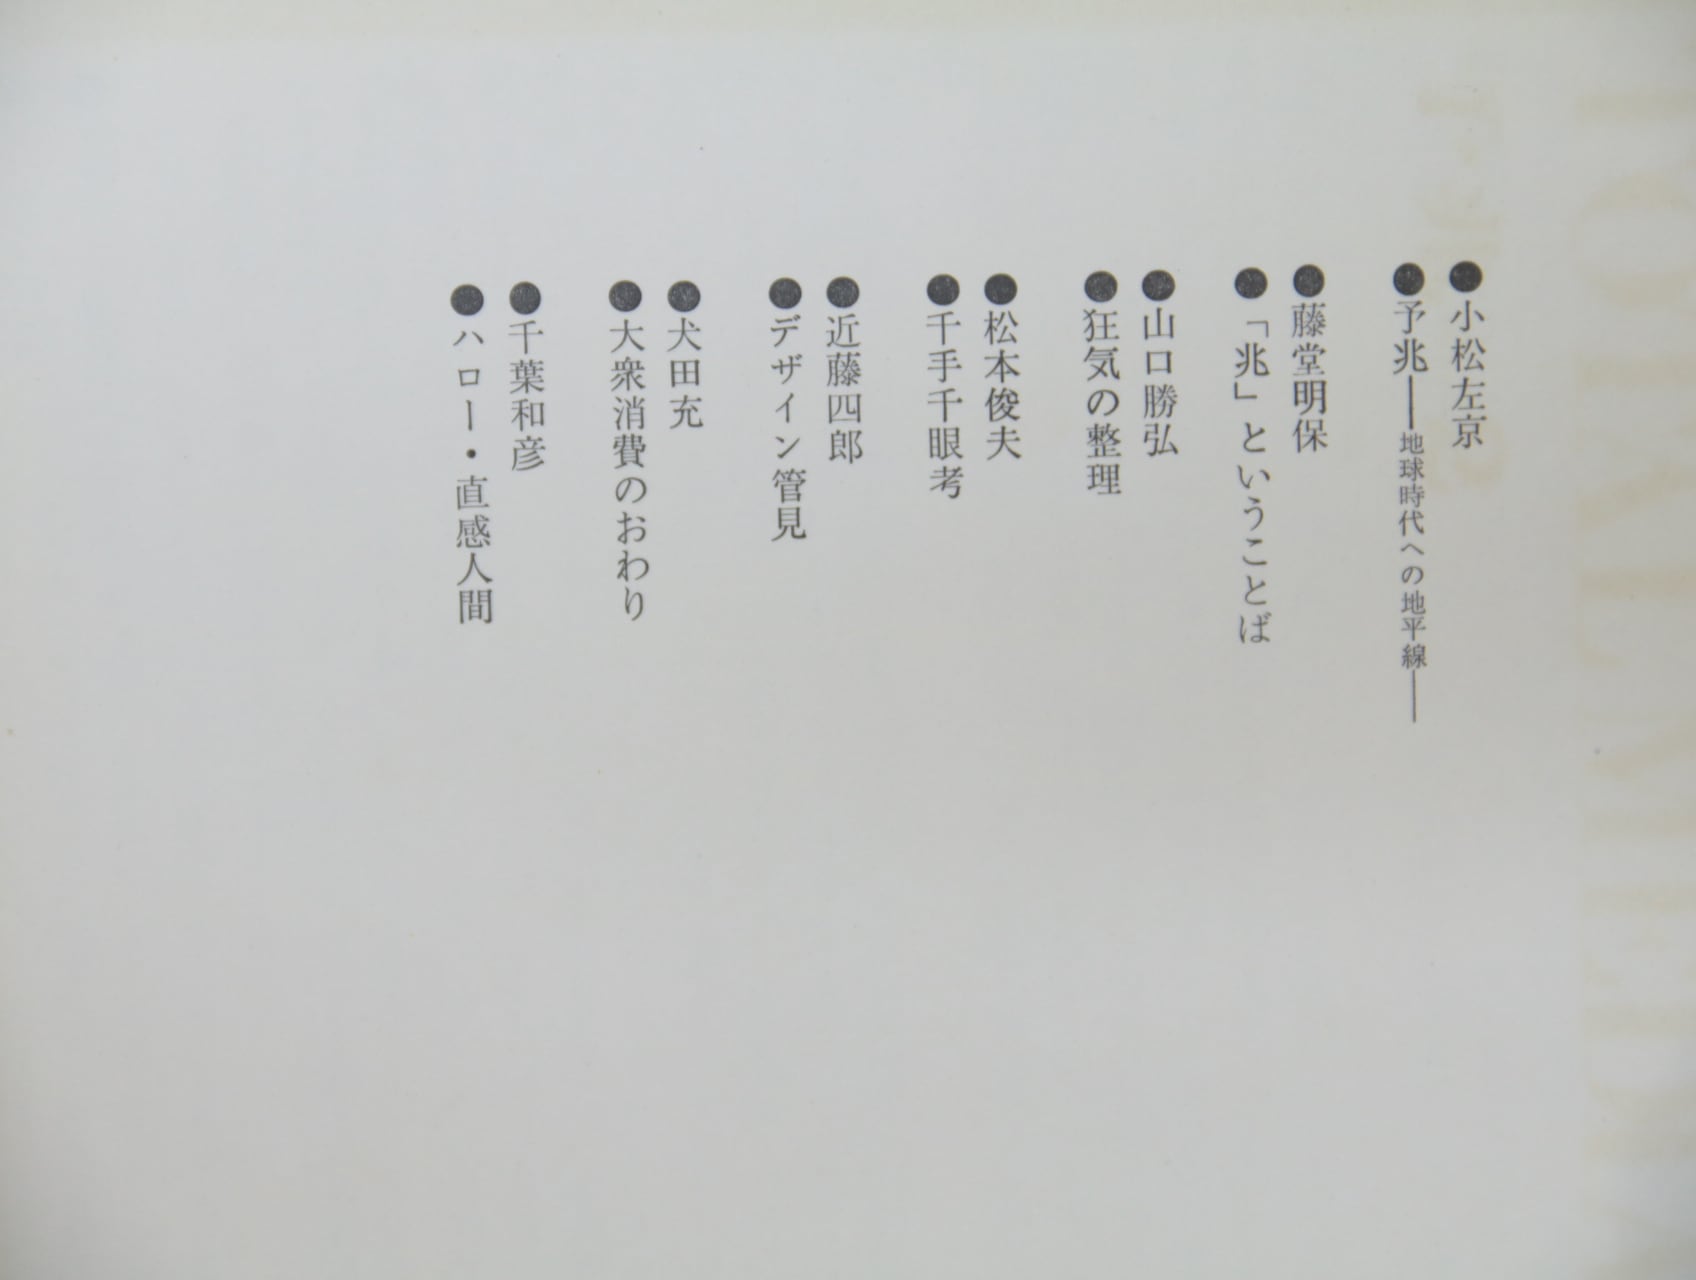 ●小松左京
●予兆──地球時代への地平線──
●藤堂明保
●「兆」ということば
●山口勝弘
●狂気の整理
●松本俊夫
●千手千眼考
●近藤四郎
●デザイン管見
●犬田充
●大衆消費のおわり
●千葉和彦
●ハロー・直感人間